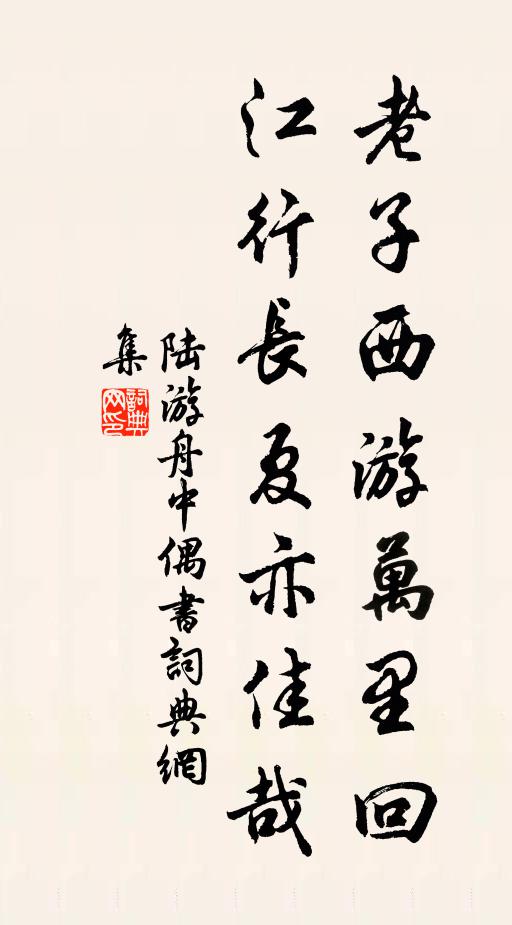 老子西游萬里回
江行長夏亦佳哉
陸游舟中偶書詞典網
集
詞典
网印